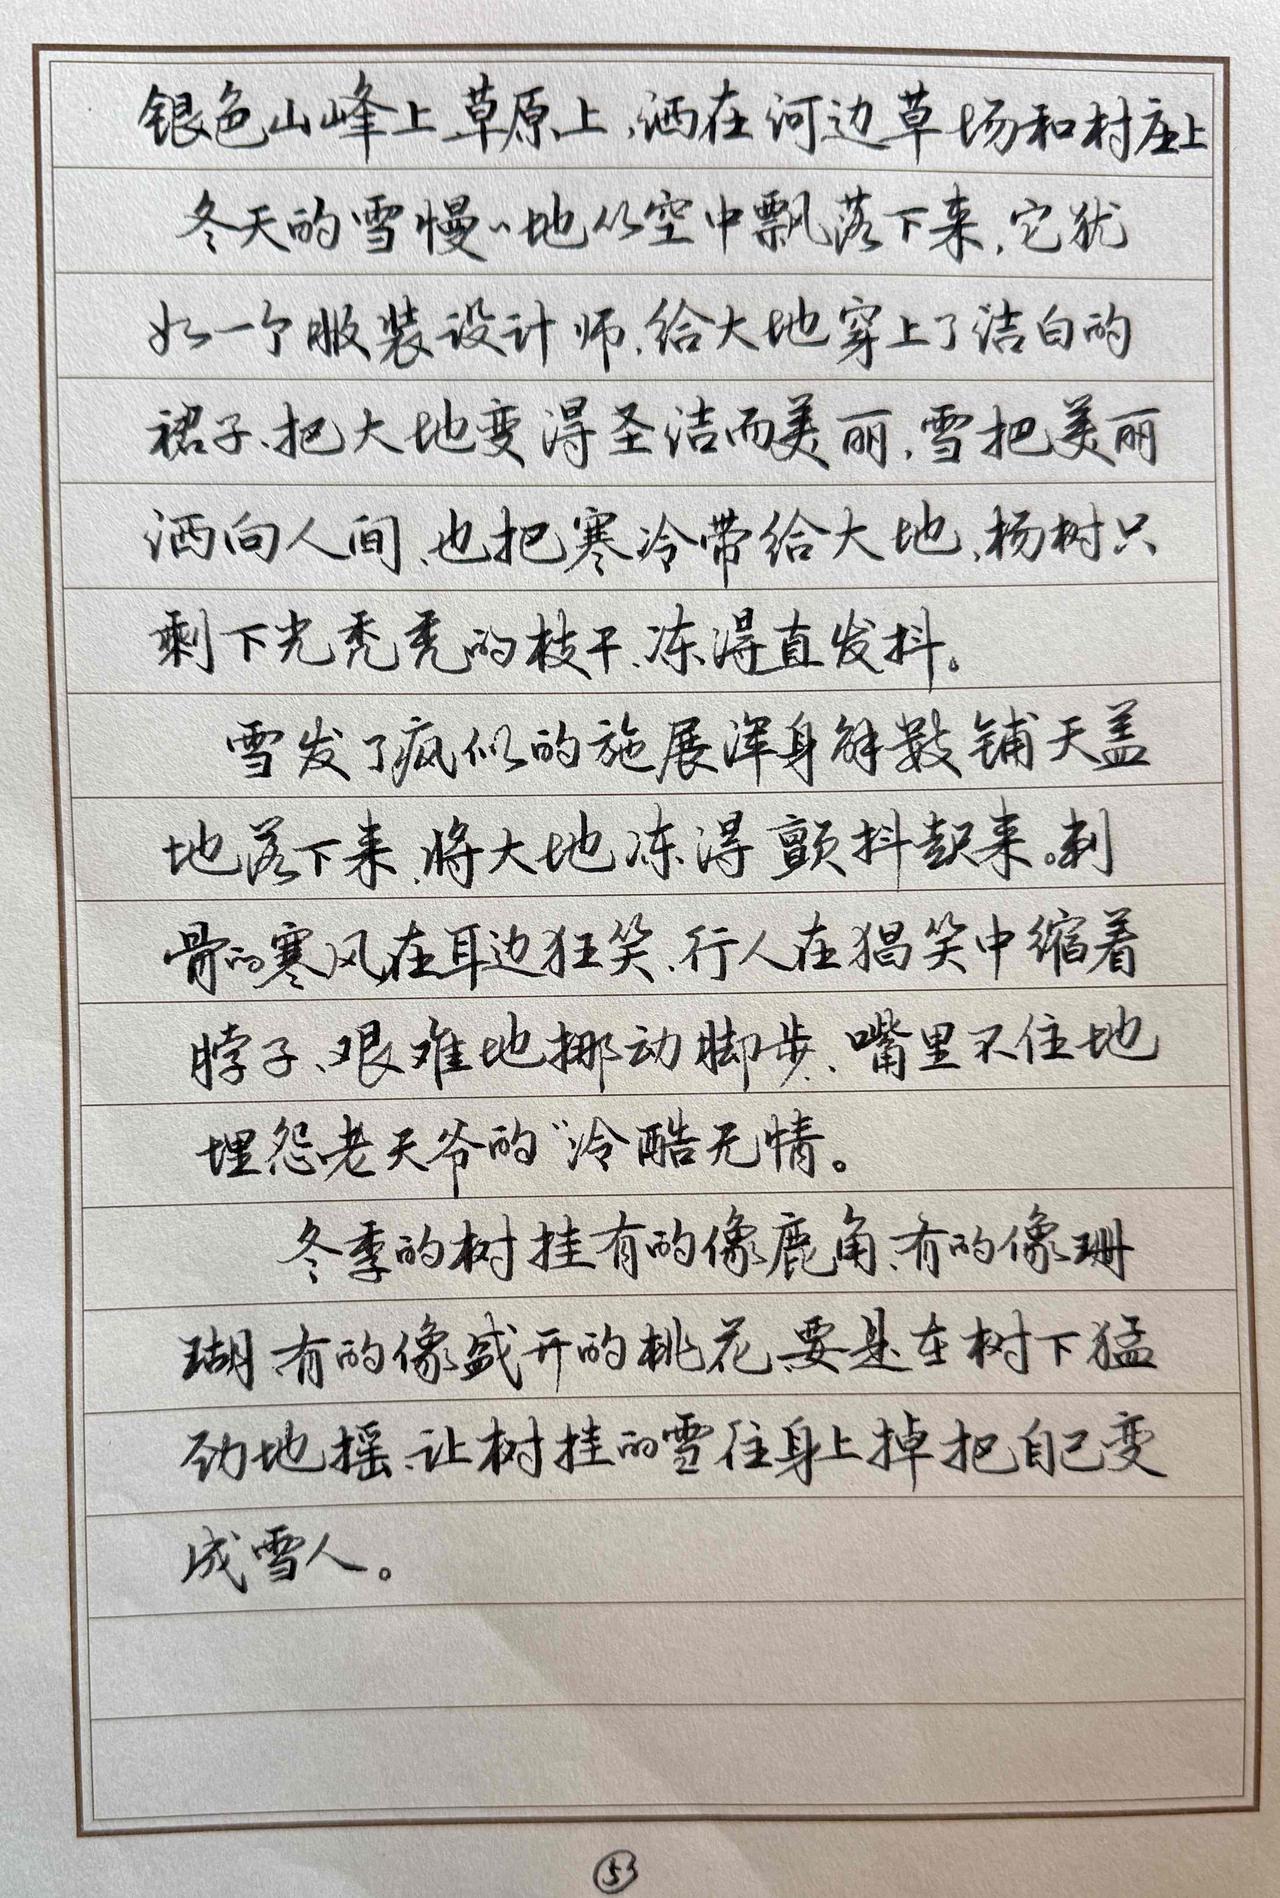 银色山峰上草原上,洒在河边草场和村庄上
冬天的雪慢〃地从空中飘落下来,它犹
如一个服装设计师,给大地穿上了洁白的
裙子、把大地变得圣洁而美丽,雪把美丽
洒向人间、也把寒冷带给大地,杨树只
剩下光秃秃的枝干、冻得直发抖。
雪发了疯似的施展浑身解数铺天盖
地落下来,将大地冻得颤抖起来。刺
骨的寒风在耳边狂笑、行人在猖笑中缩着
脖子、艰难地挪动脚步、嘴里不住地
埋怨老天爷的"冷酷无情。
冬季的树挂有的像鹿角、有的像珊
瑚、有的像盛开的桃花、要是在树下猛
劲地摇、让树挂的雪往身上掉把自己变
成雪人。
53